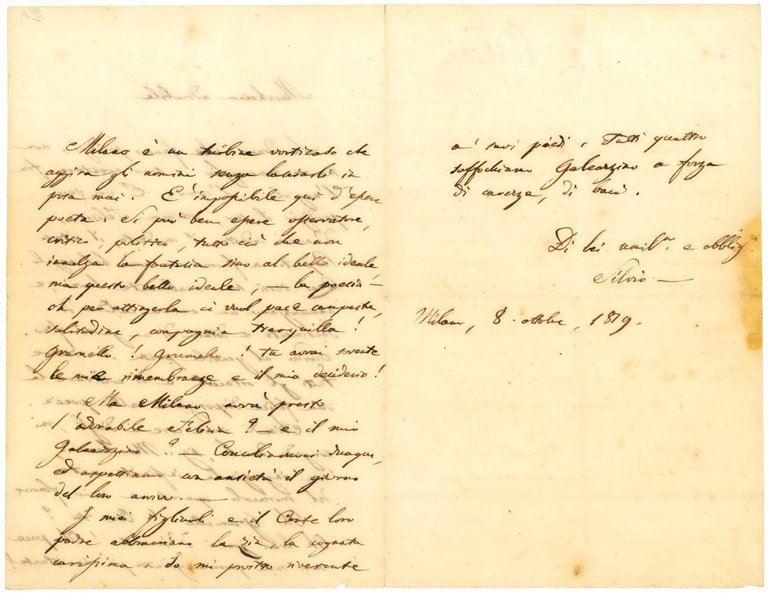 Milano è un turbine vorticoso che
aggira gli uomini senza lasciarli in
posa mai. È impossibile qui d'essere
poeta. Si può ben essere osservatore,
critico, politico, tutto ciò che non
innalza la fantasia sino al bello ideale,
ma questo bello ideale, — la poesia —
oh per attingerla ci vuol pace campestre,
solitudine, compagnia tranquilla!
Grumello! Grumello! tu avrai sovente
le mie rimembranze e il mio desiderio!
Ma Milano avrà presto
l'adorabile Felicia? — e il mio
Galeazzino? — Consoliamoci dunque,
ed aspettiamo con ansietà il giorno
del loro arrivo. —
I miei figliuoli e il Conte loro
padre abbracciano la zia la cognata
carissima. Io mi prostro riverente
a' suoi piedi. Tutti quattro
soffochiamo Galeazzino a forza
di carezze, di baci.
Di lei umil.mo e obblig.
Silvio —
Milano, 8. ottobre, 1819.